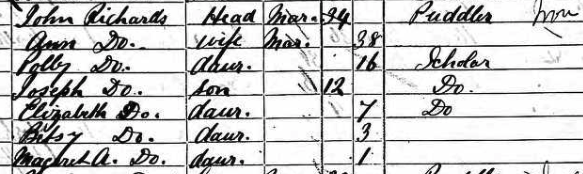 John Richards Head Mar. 34 Puddler Iron
Ann Do. wife Mar. 38
Polly Do. daur. 16 Scholar
Joseph Do. son 12 Do.
Elizabeth Do. daur. 7 Do
Betsy Do. daur. 3
Margaret A. Do. daur. 1